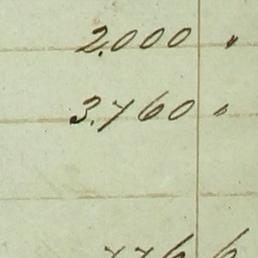 2.000 "
3.760 "